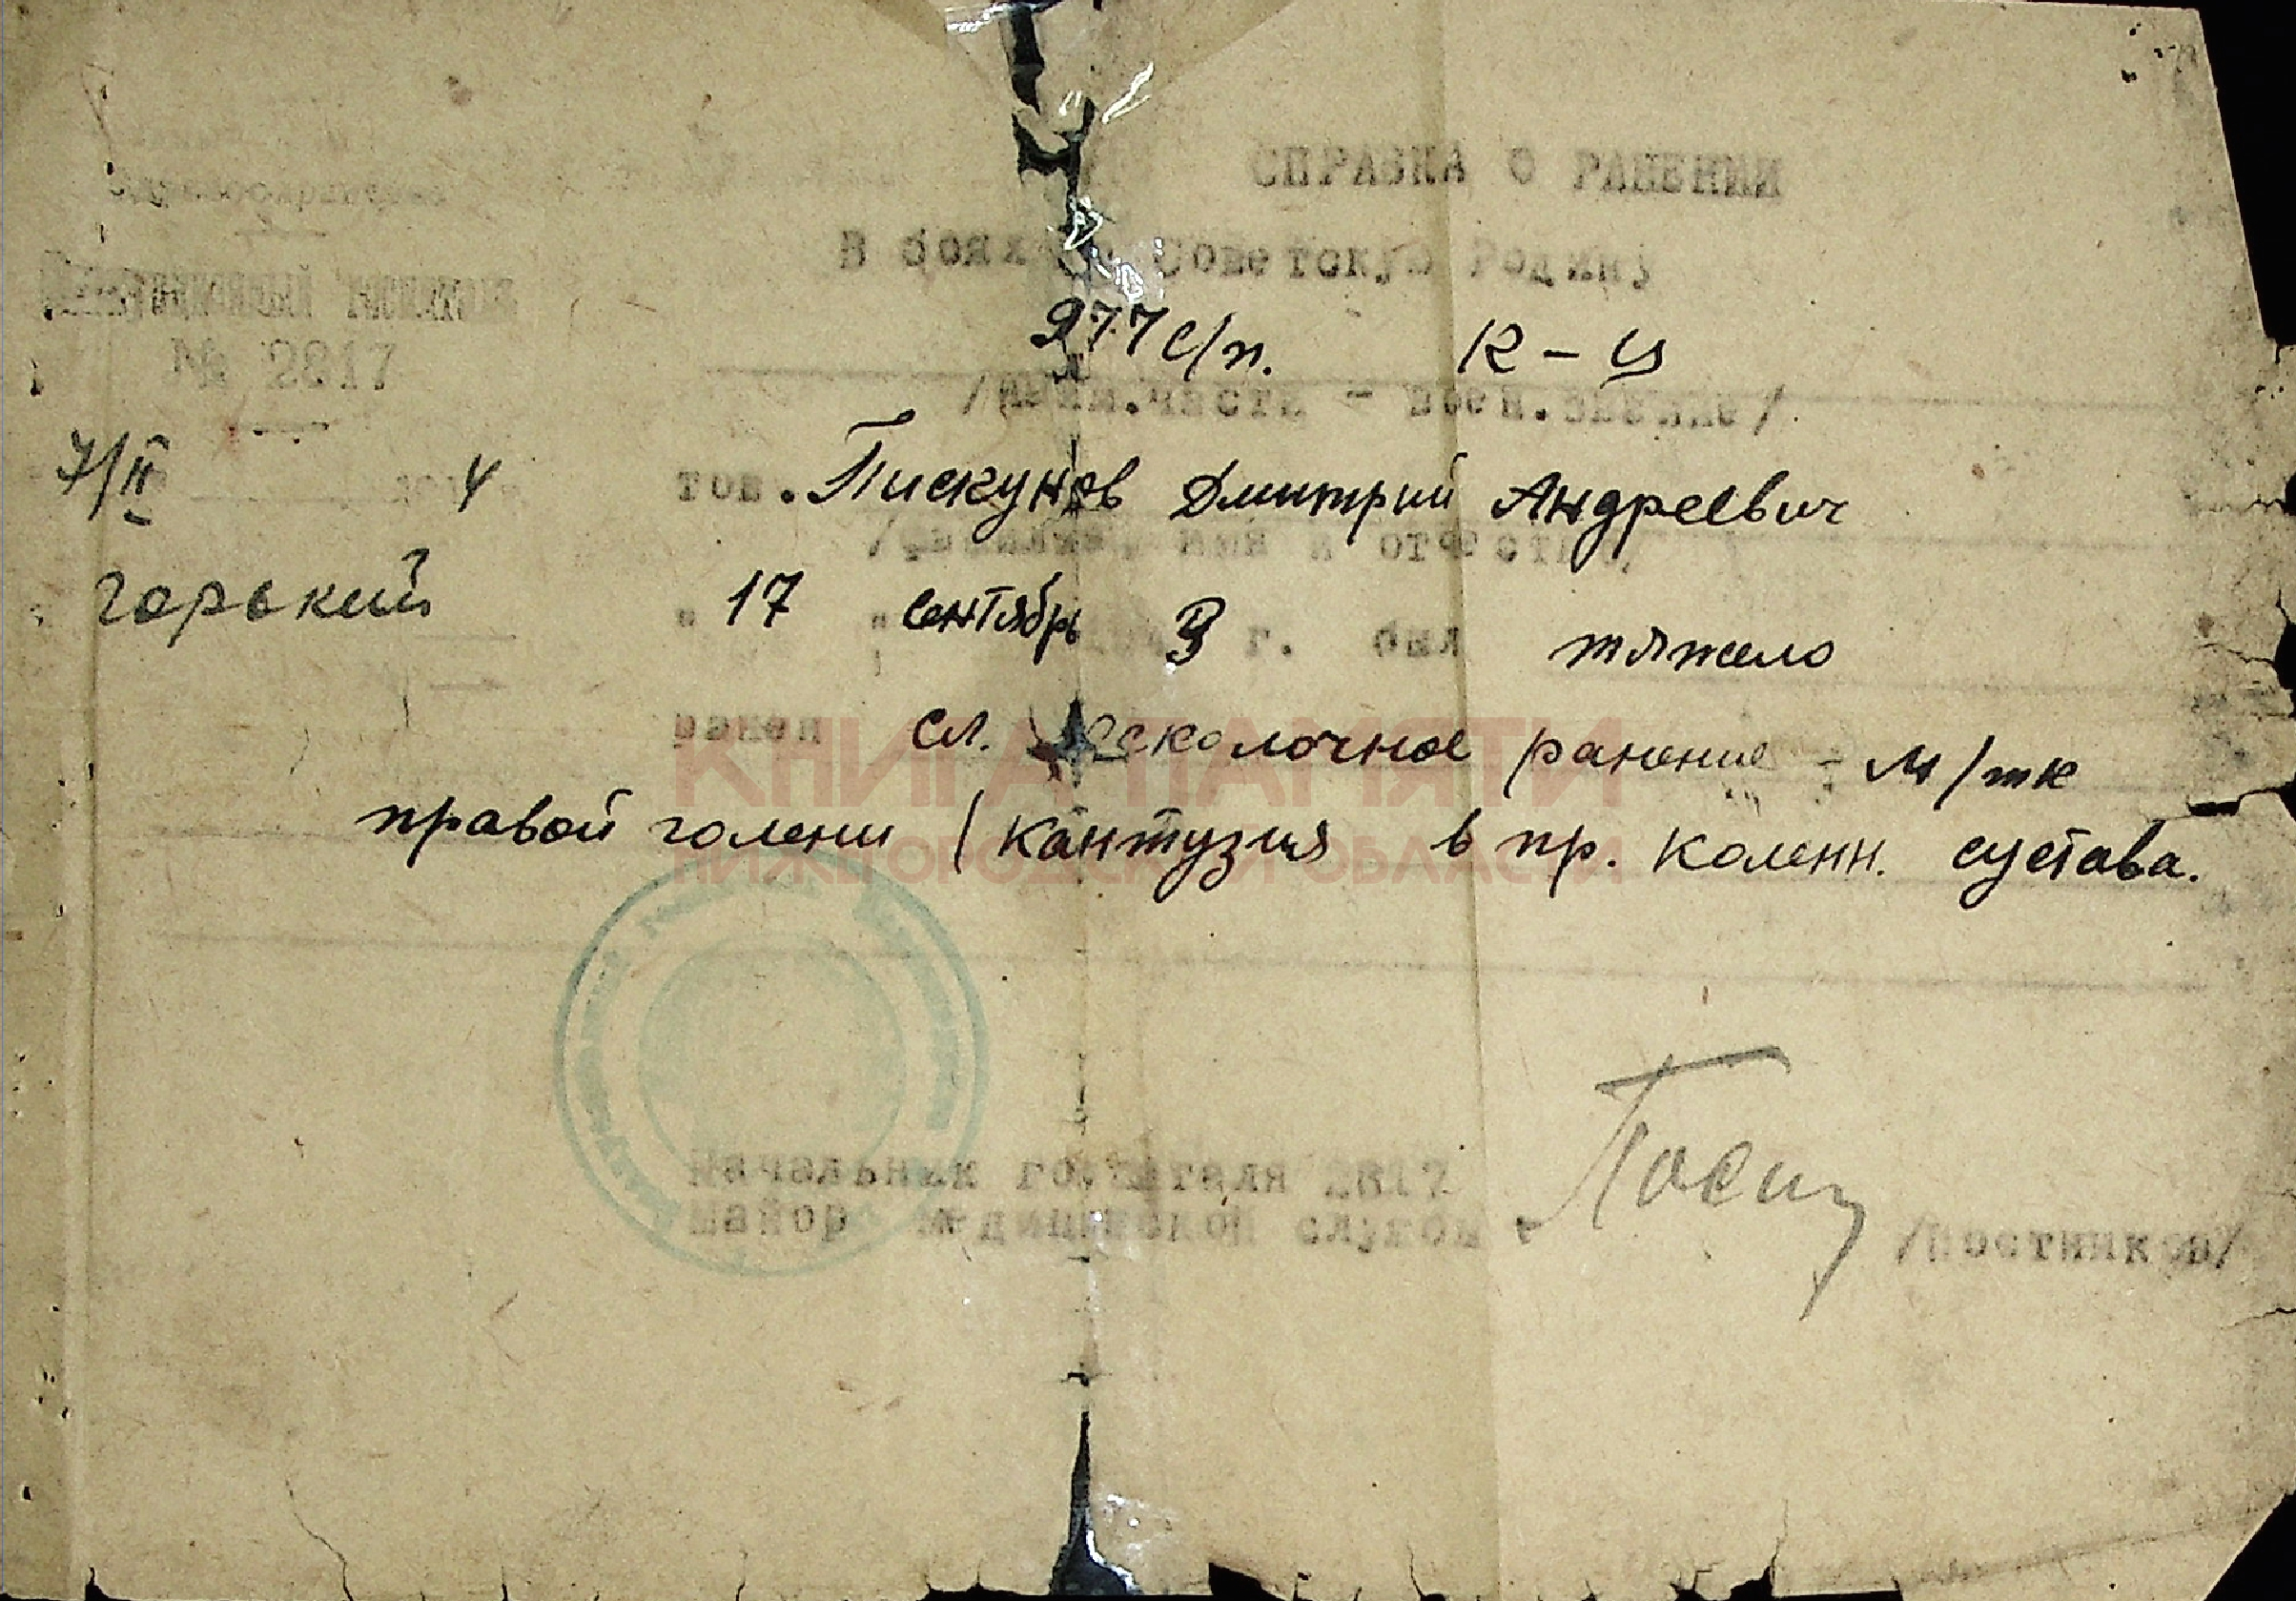 Здравоохранения
СПРАВКА О РАНЕНИИ
В боях Советскую Родину
Эвакуационный госпиталь
№ 2817
277 с/п. К-ц
/наим.части - воен.звание/
7/II 4
тов. Пискунов Дмитрий Андреевич
/фамилия, имя и отчество/
Горький
" 17 " сентябрь 3 г. был тяжело
ранен сл. осколочное ранение - м/тк
правой голени / кантузия в пр. коленн. сустава.
КНИГА ПАМЯТИ
НИЖЕГОРОДСКОЙ ОБЛАСТИ
Начальник госпиталя 2817
майор медицинской службы -
/Постников/